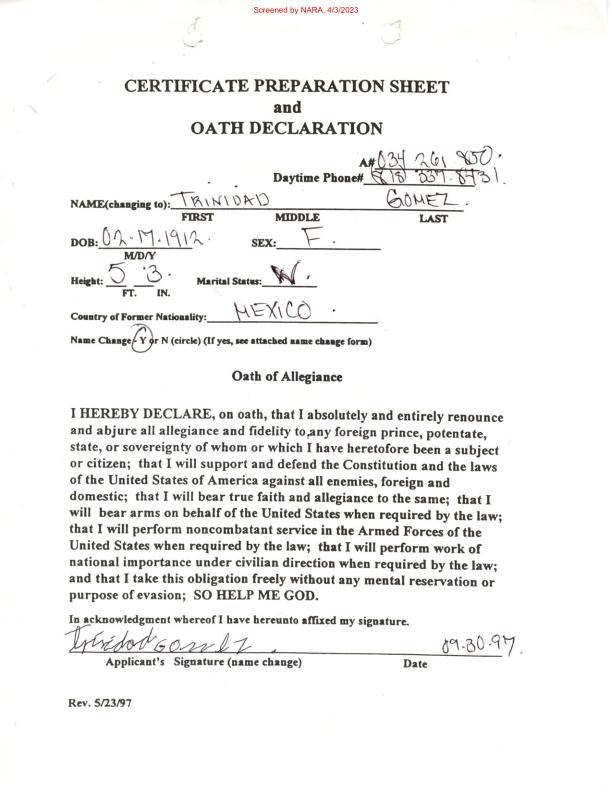 Screened by NARA, 4/3/2023
CERTIFICATE PREPARATION SHEET
and
OATH DECLARATION
A# 034 261 850.
Daytime Phone# 818 337-8431.
NAME(changing to): TRINIDAD GOMEZ.
FIRST MIDDLE LAST
DOB: 02-17-1912. SEX: F.
M/D/Y
Height: 5 3. Marital Status: W.
FT. IN.
Country of Former Nationality: MEXICO.
Name Change- Y or N (circle) (If yes, see attached name change form)
Oath of Allegiance
I HEREBY DECLARE, on oath, that I absolutely and entirely renounce
and abjure all allegiance and fidelity to,any foreign prince, potentate,
state, or sovereignty of whom or which I have heretofore been a subject
or citizen; that I will support and defend the Constitution and the laws
of the United States of America against all enemies, foreign and
domestic; that I will bear true faith and allegiance to the same; that I
will bear arms on behalf of the United States when required by the law;
that I will perform noncombatant service in the Armed Forces of the
United States when required by the law; that I will perform work of
national importance under civilian direction when required by the law;
and that I take this obligation freely without any mental reservation or
purpose of evasion; SO HELP ME GOD.
In acknowledgment whereof I have hereunto affixed my signature.
Trinidad GOMEZ. 09-30-97.
Applicant's Signature (name change) Date
Rev. 5/23/97